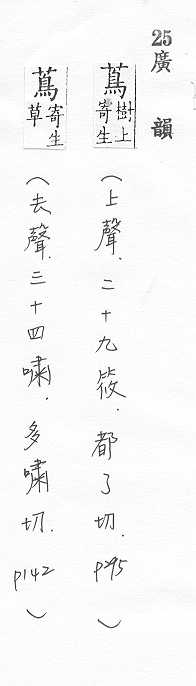 25廣韻
蔦樹上寄生（上聲．二十九筱．都了切．P295）
蔦寄生草（去聲．三十四嘯．多嘯切．P142）